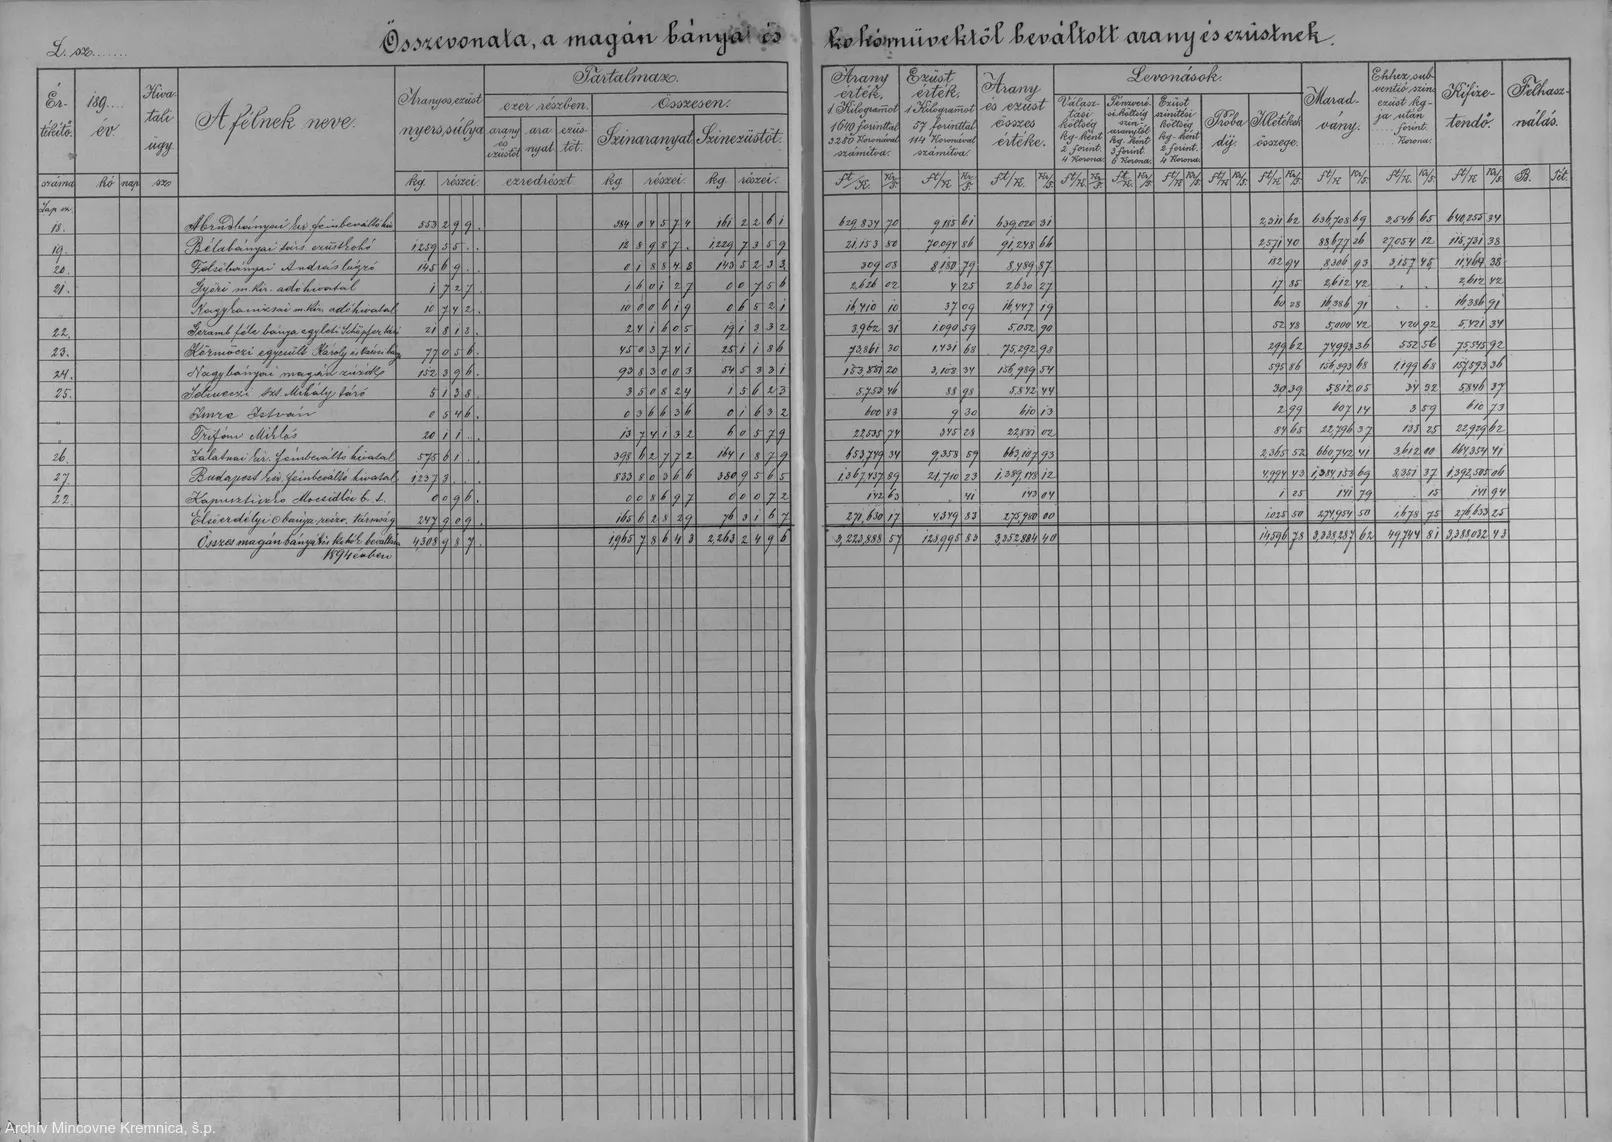 L. sz.......
Összevonata, a magán bányai és kohóművektől beváltott arany és ezüstnek.
Ér- tékítő. száma
189.... év. hó nap
Hiva- tali ügy. sz.
A félnek neve.
Aranyos, ezüst nyers, súlya kg. részei.
Tartalmaz.
ezer részben.
arany és ezüstöt
ara- nyat
ezüs- töt.
ezredrészt
Összesen.
Szinaranyat kg. részei.
Szinezüstöt. kg. részei.
Arany érték, 1 Kilogramot 1640 forinttal 3280 Koronával számítva.
Ezüst érték, 1 Kilogramot 57 forinttal 114 Koronával számítva.
Arany és ezüst összes értéke.
Levonások.
Válasz- tási költség kg-ként 2 forint. 4 Korona.
Pénzveré- si költség szin- aranytól kg. ként 3 forint. 6 Korona.
Ezüst színítési költség kg-ként 2 forint. 4 Korona.
Próba díj.
Illetékek összege.
Marad- vány.
Ehhez, sub- ventió, szin ezüst kg- ja után forint. Korona.
Kifize- tendő.
Felhasz- nálás.
B. Tét.
Lap sz.
18. 553 299 384 04574 161 2261 629,834 70 9,185 61 639,020 31 2,311 62 636,708 69 3,546 65 640,255 34
19. Bélabányai 1259 55 12 8987 1229 7359 21,153 80 70,094 86 91,248 66 2571 40 88677 26 27054 12 115,731 38
20. Felsőbányai András 145 69 0 18848 143 5233 309 08 8,180 79 8,489 87 182 94 8306 93 3,157 45 11,464 38
21. Győri m. kir. adóhivatal 1 727 1 60127 0 0756 2,626 02 4 25 2630 27 17 85 2,612 42 2,612 42
" Nagykanizsai m. kir. adóhivatal 10 742 10 00619 0 6521 16,410 10 37 09 16,447 19 60 28 16,386 91 16,386 91
22. Geramb féle bánya egyleti 21 813 2 41605 19 1332 3,962 31 1,090 59 5,052 90 52 48 5,000 42 420 92 5,421 34
23. Körmöczi egyesült Károly 77 056 45 03741 25 1186 73,861 30 1,431 68 75,292 98 299 62 74993 36 552 56 75,545 92
24. Nagybányai magán zúzdák 152 396 93 83003 54 5331 153,881 20 3,108 34 156,989 54 595 86 156,393 68 1,199 68 157,593 36
25. Selmeczi Szt. Mihály táró 5 138 3 50824 1 5623 5,753 46 88 98 5,842 44 30 39 5,812 05 34 32 5,846 37
" Imre István 0 546 0 36636 0 1632 600 83 9 30 610 13 2 99 607 14 3 59 610 73
" Trifoni Miklós 20 11 13 74132 6 0579 22,535 74 345 28 22,881 02 84 65 22,796 37 133 25 22,929 62
26. Zalatnai kir. fémbeváltó hivatal 575 61 398 62772 164 1879 653,749 34 9,358 59 663,107 93 2,365 52 660,742 41 3,612 00 664,354 41
27. Budapest kir. fémbeváltó hivatal 1237 3 833 80366 380 9565 1,367,437 89 21,710 23 1,389,148 12 4,994 43 1,384,153 69 8,351 37 1,392,505 06
22. 0 096 0 08697 0 0072 142 63 41 143 04 1 25 141 79 15 141 94
247 909 165 62829 76 3167 271,630 17 4,349 83 275,980 00 1,025 50 274,954 50 1,678 75 276,633 25
Összes magán 1894 évben 4,308 987 1965 78643 2,263 2496 3,223,888 57 128,995 83 3,352,884 40 14,596 78 3,338,287 62 49,744 81 3,388,032 43
Archív Mincovne Kremnica, š.p.